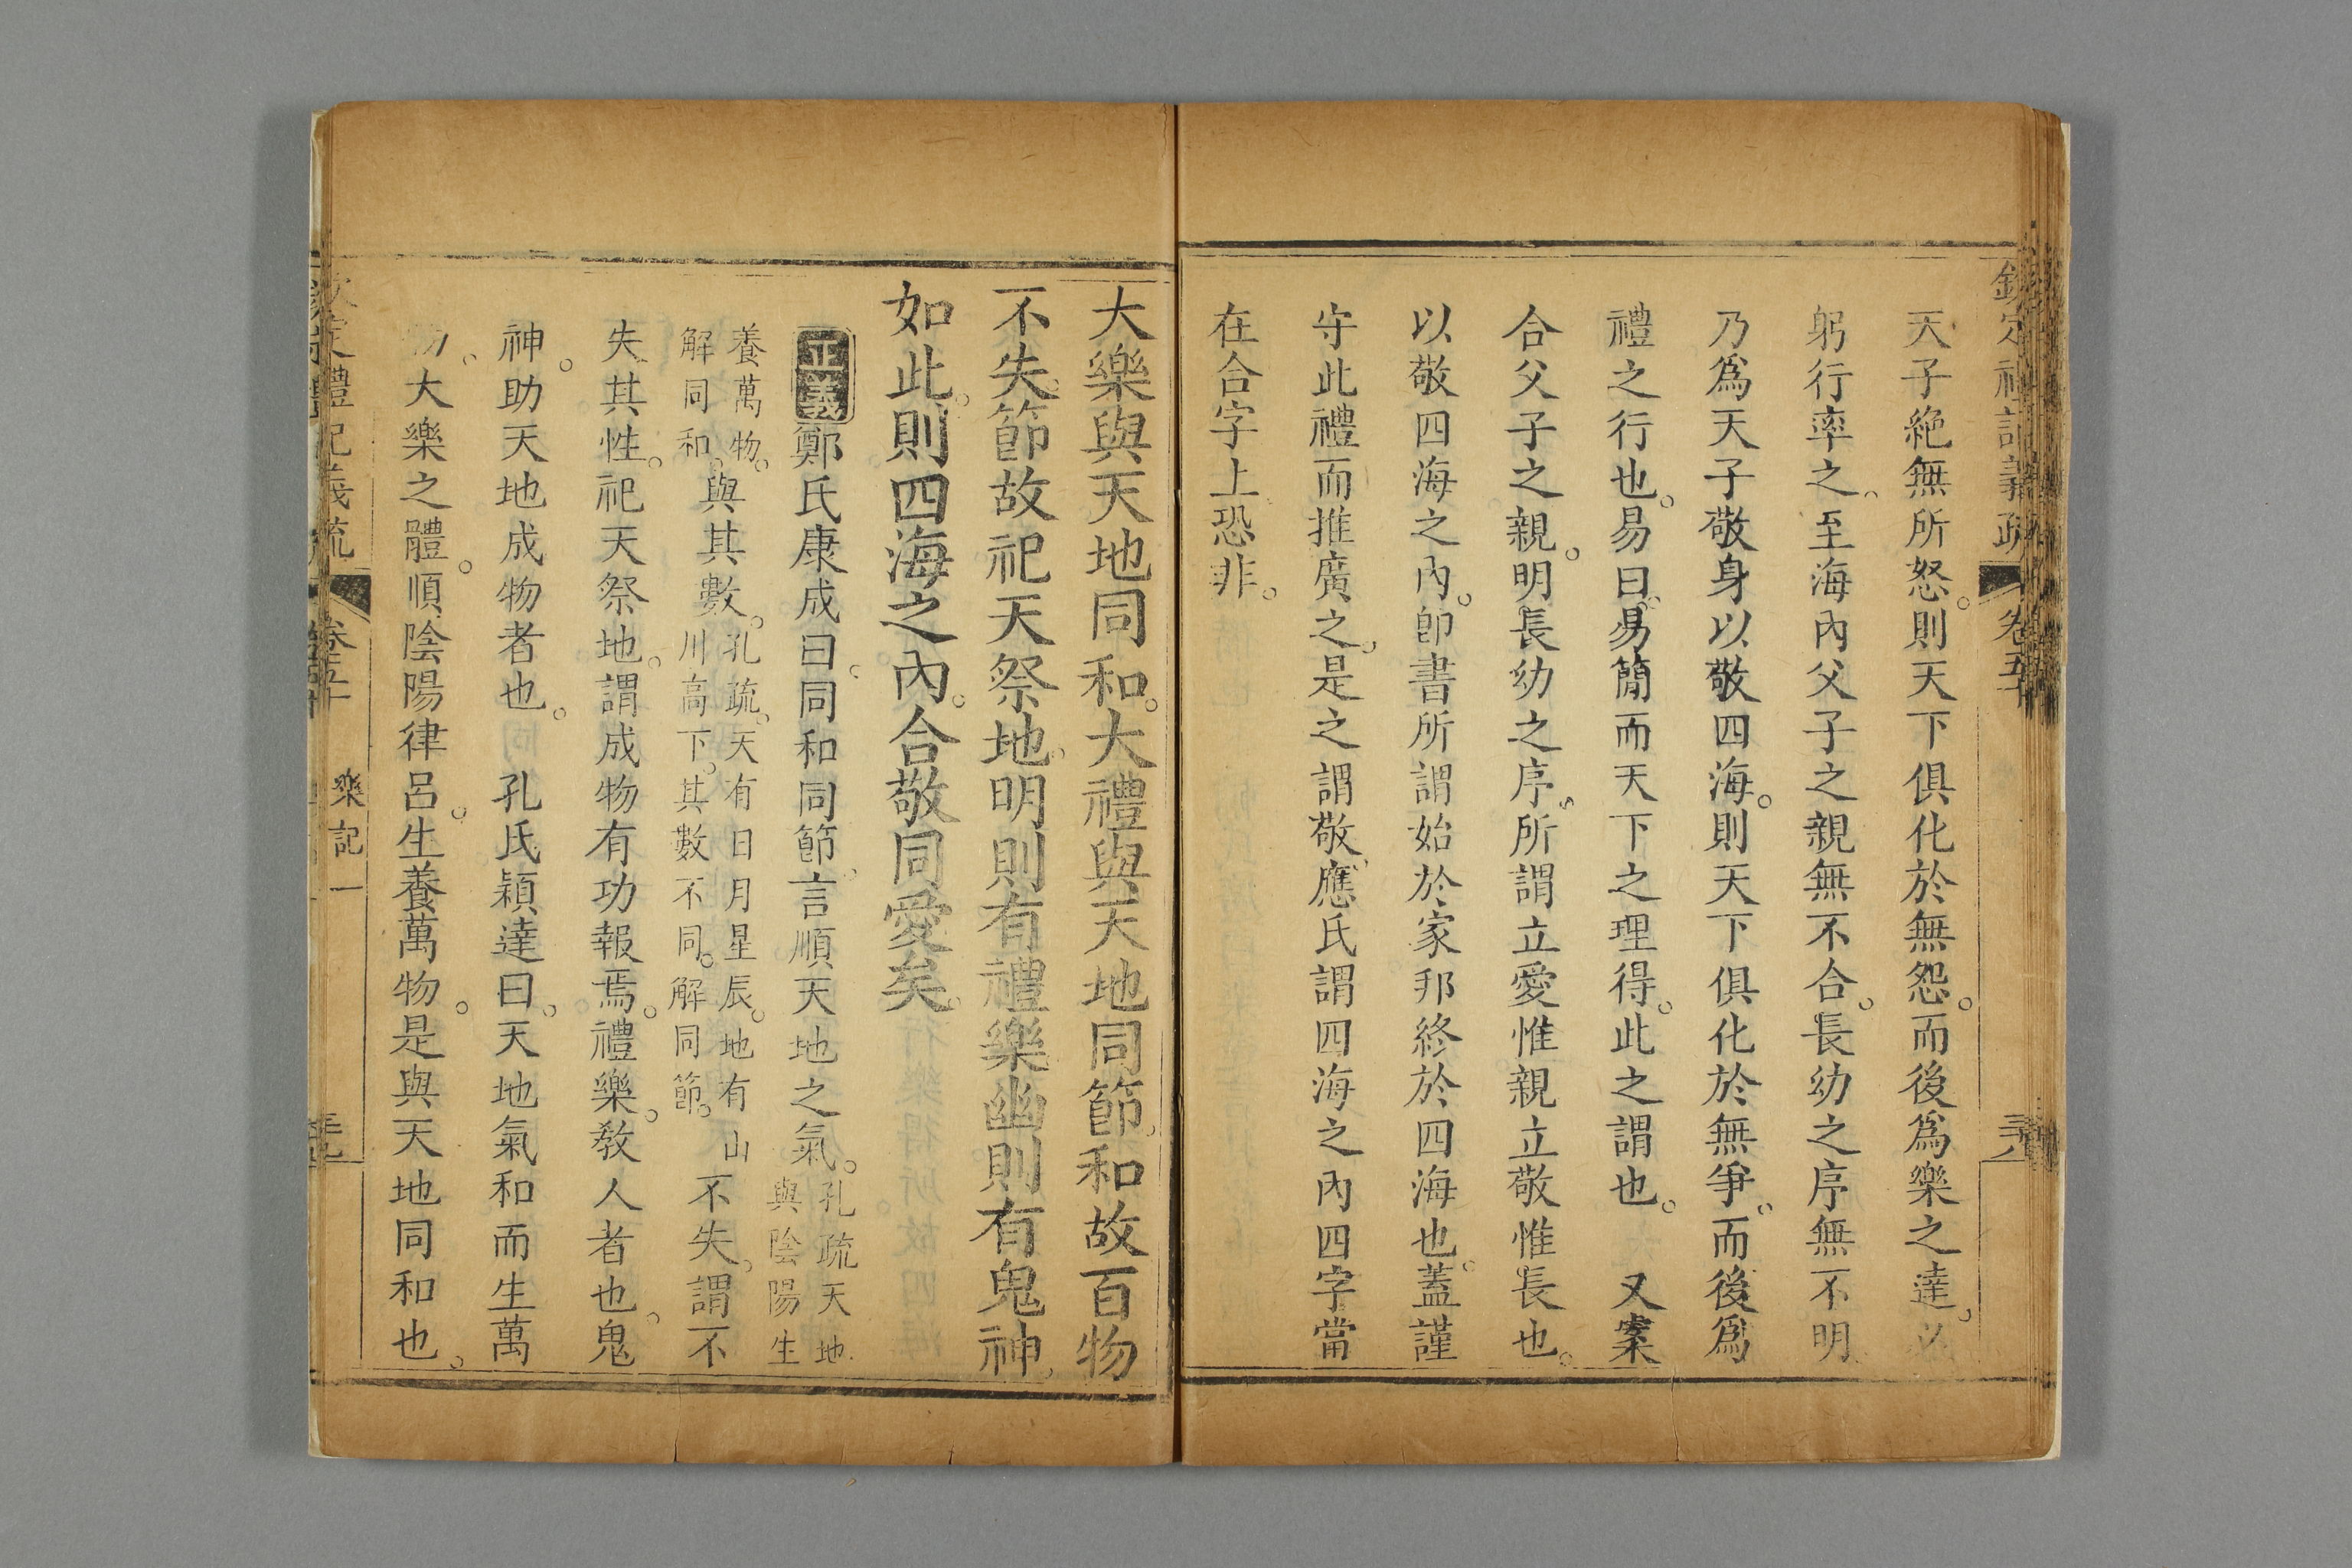 欽定禮記義疏 卷五十 三十八
天子絶無所怒則天下俱化於無怨而後爲樂之達以
躬行率之至海內父子之親無不合長幼之序無不明
乃爲天子敬身以敬四海則天下俱化於無爭而後爲
禮之行也易曰易簡而天下之理得此之謂也 又案
合父子之親明長幼之序所謂立愛惟親立敬惟長也
以敬四海之內卽書所謂始於家邦終於四海也蓋謹
守此禮而推廣之是之謂敬應氏謂四海之內四字當
在合字上恐非
大樂與天地同和大禮與天地同節和故百物
不失節故祀天祭地明則有禮樂幽則有鬼神
如此則四海之內合敬同愛矣
正義鄭氏康成曰同和同節言順天地之氣孔疏天地與陰陽生
養萬物解同和與其數孔疏天有日月星辰地有山川高下其數不同解同節不失謂不
失其性祀天祭地謂成物有功報焉禮樂敎人者也鬼
神助天地成物者也 孔氏穎達曰天地氣和而生萬
物大樂之體順陰陽律呂生養萬物是與天地同和也
欽定禮記義疏 卷五十 樂記一 三十九